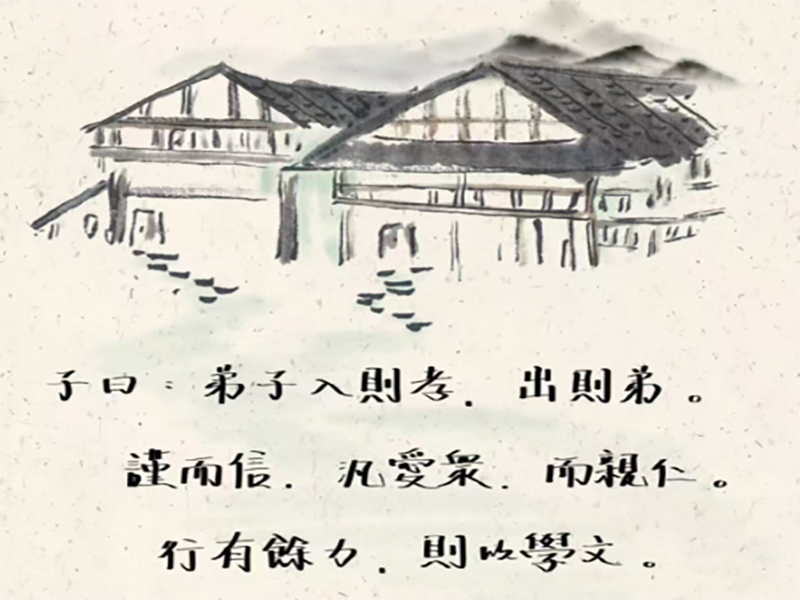 子曰：弟子入則孝．出則弟。
謹而信．汎愛衆．而親仁。
行有餘力．則以學文。